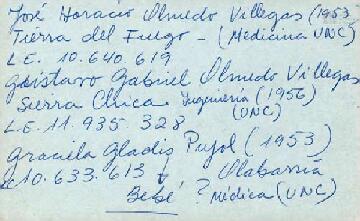 José Horacio Olmedo Villegas (1953
Tierra del Fuego - (Medicina UNC)
L.E. 10.640.619
Gustavo Gabriel Olmedo Villegas
Sierra Chica Ingeniería (1956)
(UNC)
L.E. 11.935.328
Graciela Gladis Pujol (1953)
10.633.613 y Olabarría
Bebé ? Médica (UNC)